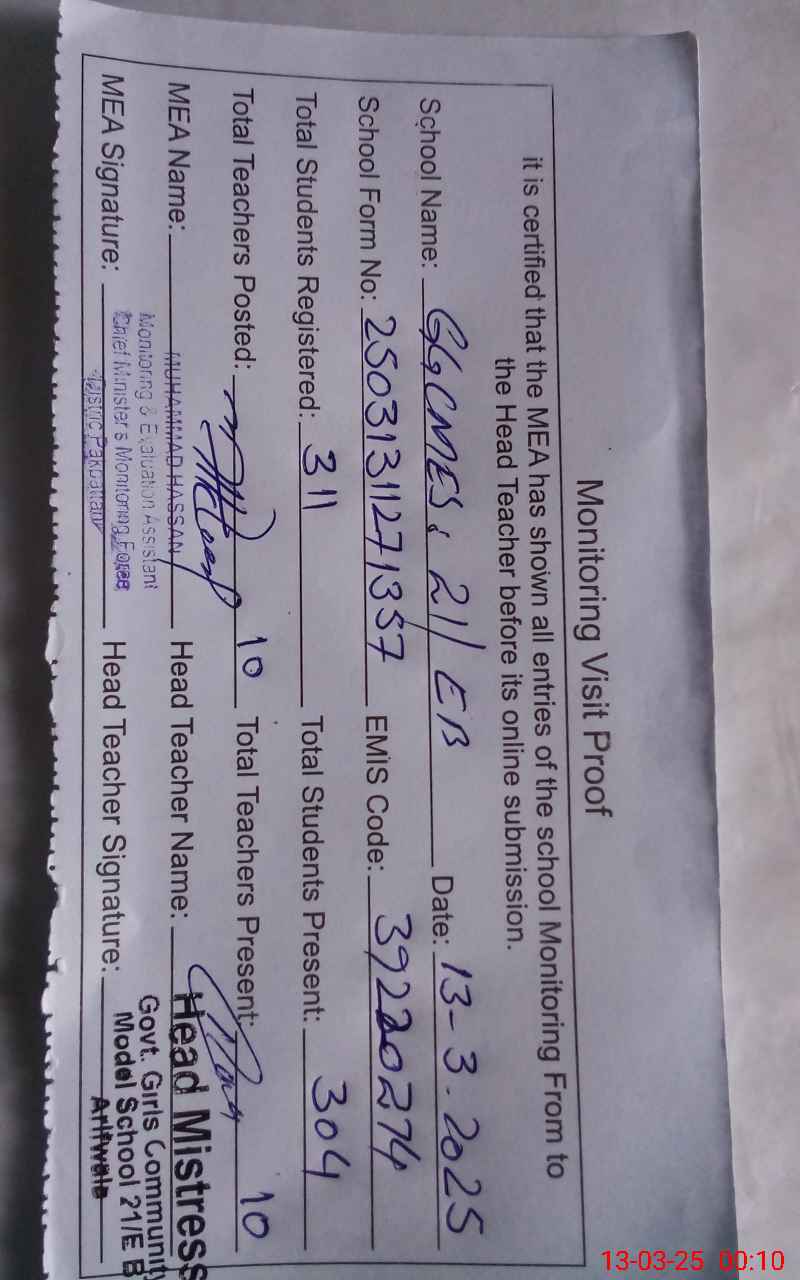 Monitoring Visit Proof
it is certified that the MEA has shown all entries of the school Monitoring From to
the Head Teacher before its online submission.
School Name: GGCMES, 21/EB Date: 13-3-2025
School Form No: 25031311271357 EMIS Code: 39220274
Total Students Registered: 311 Total Students Present: 304
Total Teachers Posted: 10 Total Teachers Present: 10
MEA Name: MUHAMMAD HASSAN Head Teacher Name: Head Mistress
Monitoring & Evaluation Assistant Govt. Girls Community
MEA Signature: Chief Minister's Monitoring Force Head Teacher Signature: Model School 21/E B
District Pakpattan Arifwala
13-03-25 00:10